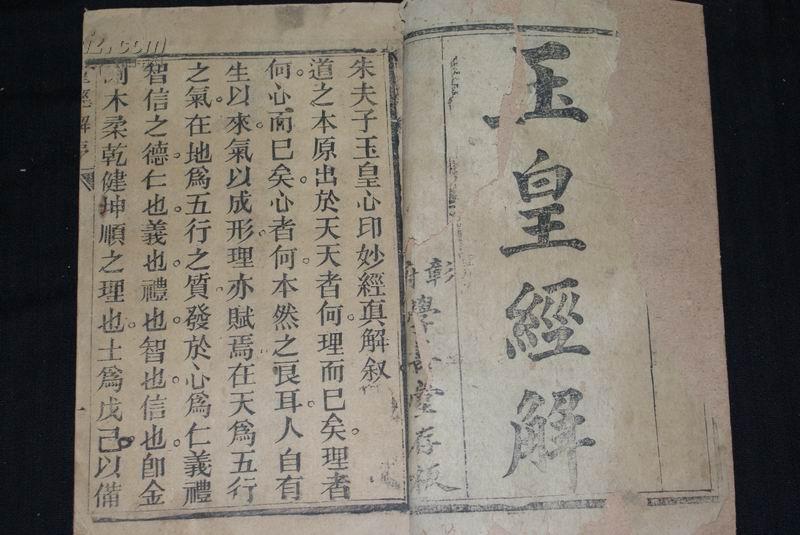 玉皇經解
彰
府
學善堂存板
朱夫子玉皇心印妙經真解叙
道之本原出於天天者何理而已矣理者
何心而已矣心者何本然之良耳人自有
生以來氣以成形理亦賦焉在天為五行
之氣在地為五行之質發於心為仁義禮
智信之德仁也義也禮也智也信也卽金
木柔乾健坤順之理也土為戊己以備